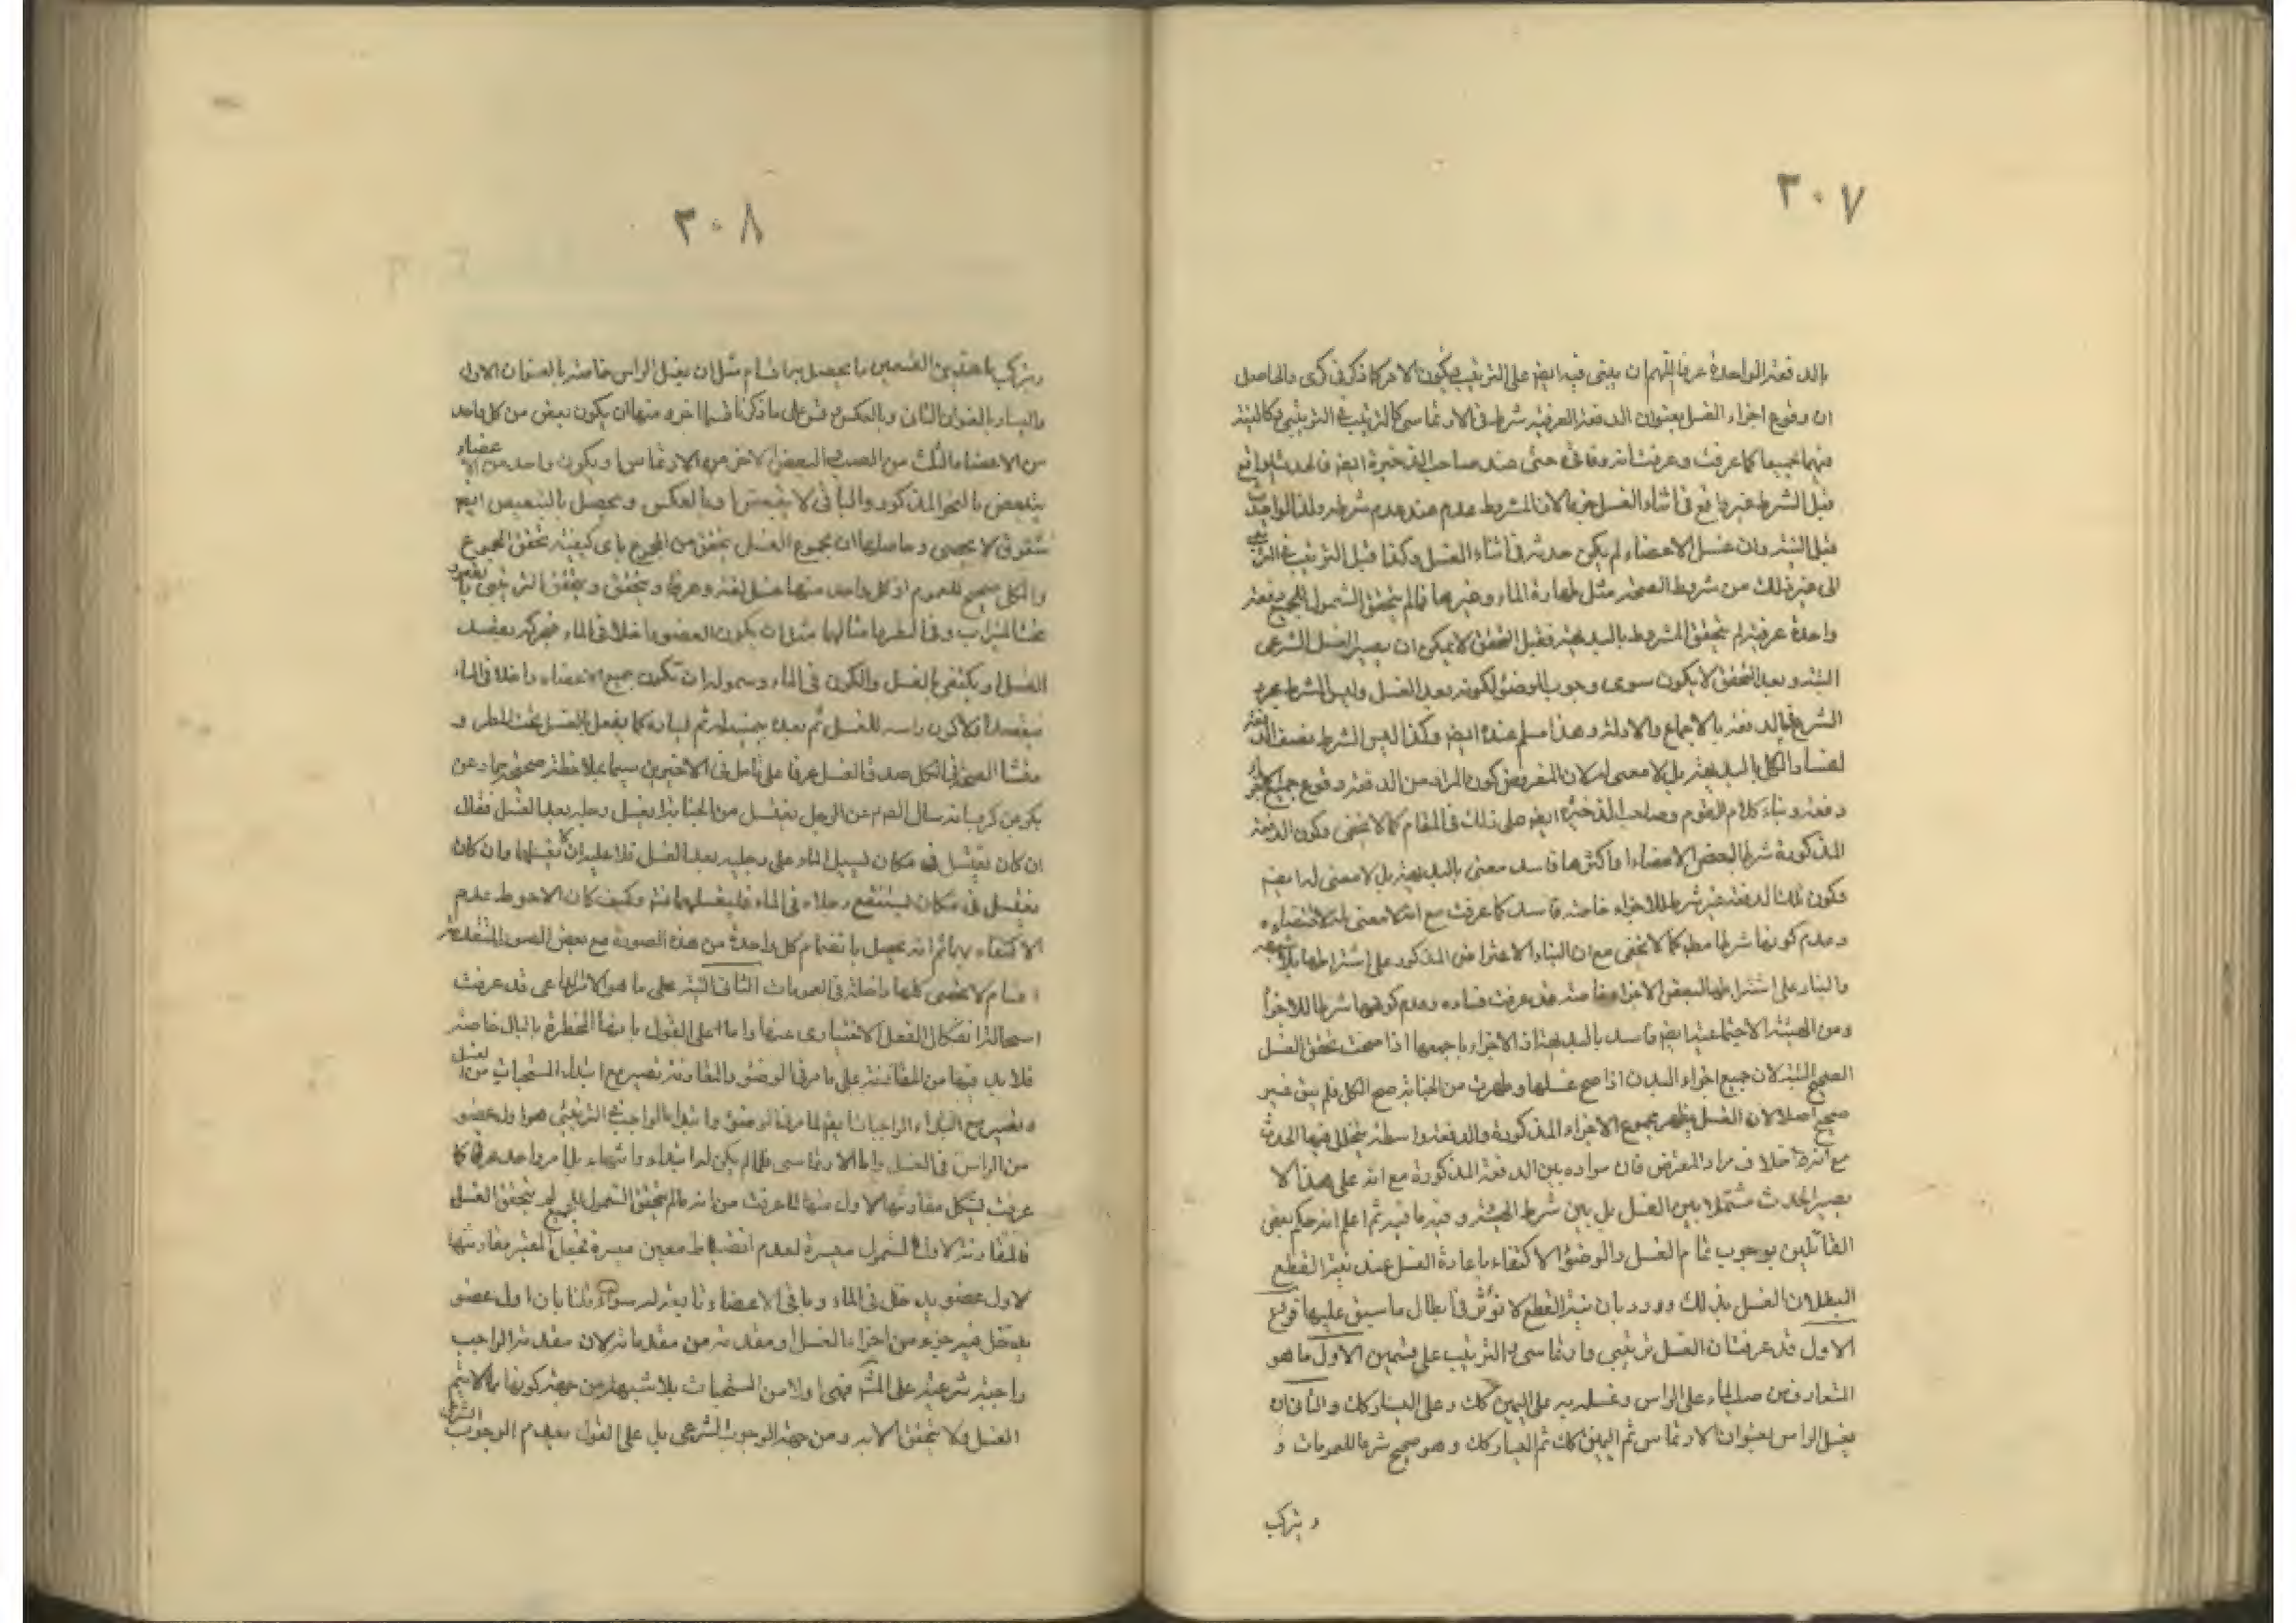 ٣٠٧
بالدفعة الواحدة عرفا اللهم ان يبنى فيه ايضم على الترتيب فيكون الامر كما ذكر فى كرى والحاصل
ان وقوع اجزاء الغسل بعنوان الدفعة العرفية شرط فى الارتماسى كالترتيب فى الترتيبى وكالنية
فيهما جميعا كما عرفت وعرفت انه وفاقى حتى عند صاحب الذخيرة ايضم فالحدث الواقع
قبل الشرط غير واقع فى اثناء الغسل جزما لان المشروط عدم عند عدم شرطه ولذا لو احدث
قبل النية وان غسل الاعضاء لم يكن حدثه فى اثناء الغسل وكذا قبل الترتيب فى الترتيبى
الى غير ذلك من شروط الصحة مثل طهارة الماء وغيرها فما لم يتحقق الشمول للجميع دفعة
واحدة عرفية لم يتحقق المشروط بالبديهة فقبل التحقق لا يمكن ان يصير الغسل الشرعى
البتة وبعد التحقق لا يكون سوى وجوب الوضوء لكونه بعد الغسل وليس الشرط مجرد
الشروع فى الدفعة بالاجماع والادلة وهذا مسلم عنده ايضم وكذا ليس الشرط نصف الدفعة
لفساد الكل بالبديهة بل لا معنى له لان المفروض كون المراد من الدفعة وقوع جميع الاجزاء
دفعة وبناء كلام القوم وصاحب الذخيرة ايضم على ذلك فى المقام كما لا يخفى وكون الدفعة
المذكورة شرطا لبعض الاعضاء او اكثرها فاسد معنى بالبديهة بل لا معنى له ايضم
وكون تلك الدفعة غير شرط للاجزاء خاصة فاسد كما عرفت مع انه لا معنى له لاقتضاءه
وعدم كونها شرطا مطم كما لا يخفى مع ان البناء الاعتراض المذكور على اشتراطها بلا شبهة
والبناء على اشتراطها لبعض الاجزاء خاصة قد عرفت فساده وعدم كونها شرطا للاجزاء
ومن الهيئة الاجتماعية ايضم فاسد بالبديهة اذ الاجزاء باجمعها اذا صحت تحقق الغسل
الصحيح البتة لان جميع اجزاء البدن اذا صح غسلها وطهرت من الجنابة صح الكل فلم يبق غير
صحيح اصلا لان الغسل يظهر بمجموع الاجزاء المذكورة والدفعة واسطة يتخلل فيها الحدث
مع انه خلاف مراد المعترض فان مراده بين الدفعة المذكورة مع انه على هذا لا
يصير الحدث متخللا بين الغسل بل بين شرط الهيئة وفيه ما فيه ثم اعلم انه حكم بعض
القائلين بوجوب تمام الغسل والوضوء الاكتفاء باعادة الغسل عند نية القطع
لبطلان الغسل بذلك وورد بان نية القطع لا تؤثر فى ابطال ما سبق عليها فروع
الاول قد عرفت ان الغسل ترتيبى وارتماسى والترتيب على قسمين الاول ما هو
المتعارف من صب الماء على الراس وغسله به على اليمين كك وعلى اليسار كك والثانى ان
يغسل الراس بعنوان الارتماس ثم اليمين كك ثم اليسار كك وهو صحيح شرعا للعمومات و
و يتركب
٣٠٨
ويتركب ما هذين القسمين ما يحصل بها اقسام مثل ان يغسل الراس خاصة بالعنوان الاول
واليسار بالعنوان الثانى وبالعكس وقس على ما ذكرنا قسما اخر ومنها ان يكون بعض من كل واحد
من الاعضاء الثلث من الصب والبعض الاخر من الارتماس او يكون واحد من الاعضاء
يتبعض بالنحو المذكور والباقى لا يتبعض او بالعكس ويحصل بالتبعيض ايضم
شقوق لا يحصى وحاصلها ان مجموع الغسل يتحقق من المجموع باى كيفية تحقق المجموع
والكل صحيح للعموم اذ كل واحد منها غسل لغة وعرفا ويتحقق ويتحقق الترتيبى بالقعود
تحت الميزاب وفى المطر
الغسل او يكتفى بالغسل والكون فى الماء وشموله ان تكون جميع الاعضاء داخلة فى الماء
فيقصد اولا كون راسه للغسل ثم بعده يمينه ثم يساره كما يفعل بالغسل تحت المطر و
منشأ الصحة فى الكل صدق الغسل عرفا على تامل فى الاخيرين سيما بملاحظة صحيحة
بكر بن كرب انه سال الصم عن الرجل يغتسل من الجنابة ايغسل رجليه بعد الغسل فقال
ان كان يغتسل فى مكان يسيل الماء على رجليه بعد الغسل فلا عليه ان لا يغسلها وان كان
يغتسل فى مكان يستنقع رجلاه فى الماء فليغسلهما وكيف كان الاحوط عدم
الاكتفاء بهما ثم انه يحصل بانضمام كل واحدة من هذه الصورة مع بعض الصور المتقدمة
اقسام لا تحصى كلها داخلة فى العمومات الثانى النية على ما هو الداعى قد عرفت
استحالة انفكاك الفعل الاختيارى عنها واما على القول بانها المخطرة بالبال خاصة
فلا بد فيها من المقارنة على ما مر فى الوضوء والمقارنة تصير مع ابتداء المستحبات من الغسل
وتصير مع ابتداء الواجبات ايضم لما مر فى الوضوء وابتداء الواجب فى الترتيبى هو اول عضو
من الراس فى الغسل واما الارتماسى فلما لم يكن له ابتداء وانتهاء بل امر واحد عرفى كما
عرفت يشكل مقارنتها الاول منها لما عرفت من انه ما لم يتحقق الشمول للجميع لم يتحقق الغسل
فالمقارنة لاول الشمول معسرة لعدم انضباط معين ميسرة فجعل المعتبر مقارنتها
لاول عضو يدخل فى الماء وباقى الاعضاء تابعة له سواء قلنا بان اول عضو
يدخل فيه جزء من اجزاء الغسل او مقدمة من مقدماته لان مقدمة الواجب
واجبة شرعية على المشهور فهى اولا من المستحبات بلا شبهة من جهة كونها ما لا يتم
الغسل ولا يتحقق الا به ومن جهة الوجوب الشرعى بل على القول بعدم الوجوب الشرعى